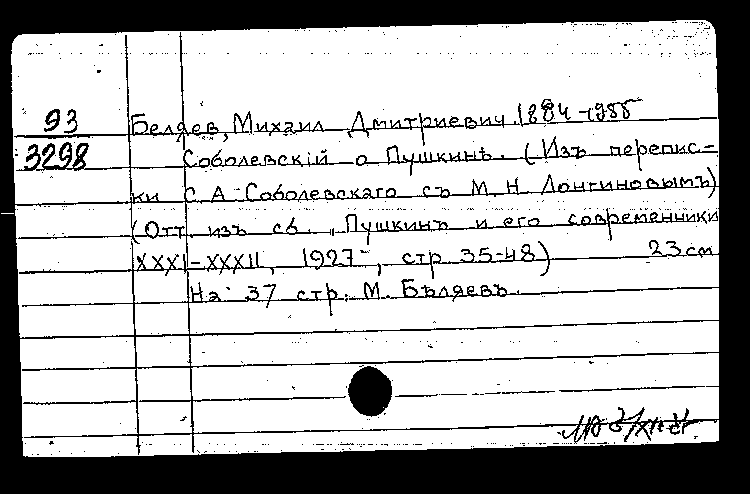 93
3298
Беляев, Михаил Дмитриевич. 1884-1955
Соболевскій о Пушкинѣ. (Изъ перепис-
ки С. А. Соболевскаго съ М. Н. Лонгиновымъ)
(Отт. изъ сб. „Пушкинъ и его современники
XXXI-XXXII, 1927, стр. 35-48) 23 см
На 37 стр. М. Бѣляевъ.